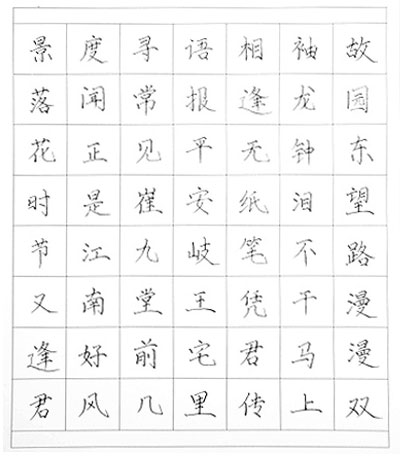 故园东望路漫漫双
袖龙钟泪不干马上
相逢无纸笔凭君传
语报平安岐王宅里
寻常见崔九堂前几
度闻正是江南好风
景落花时节又逢君